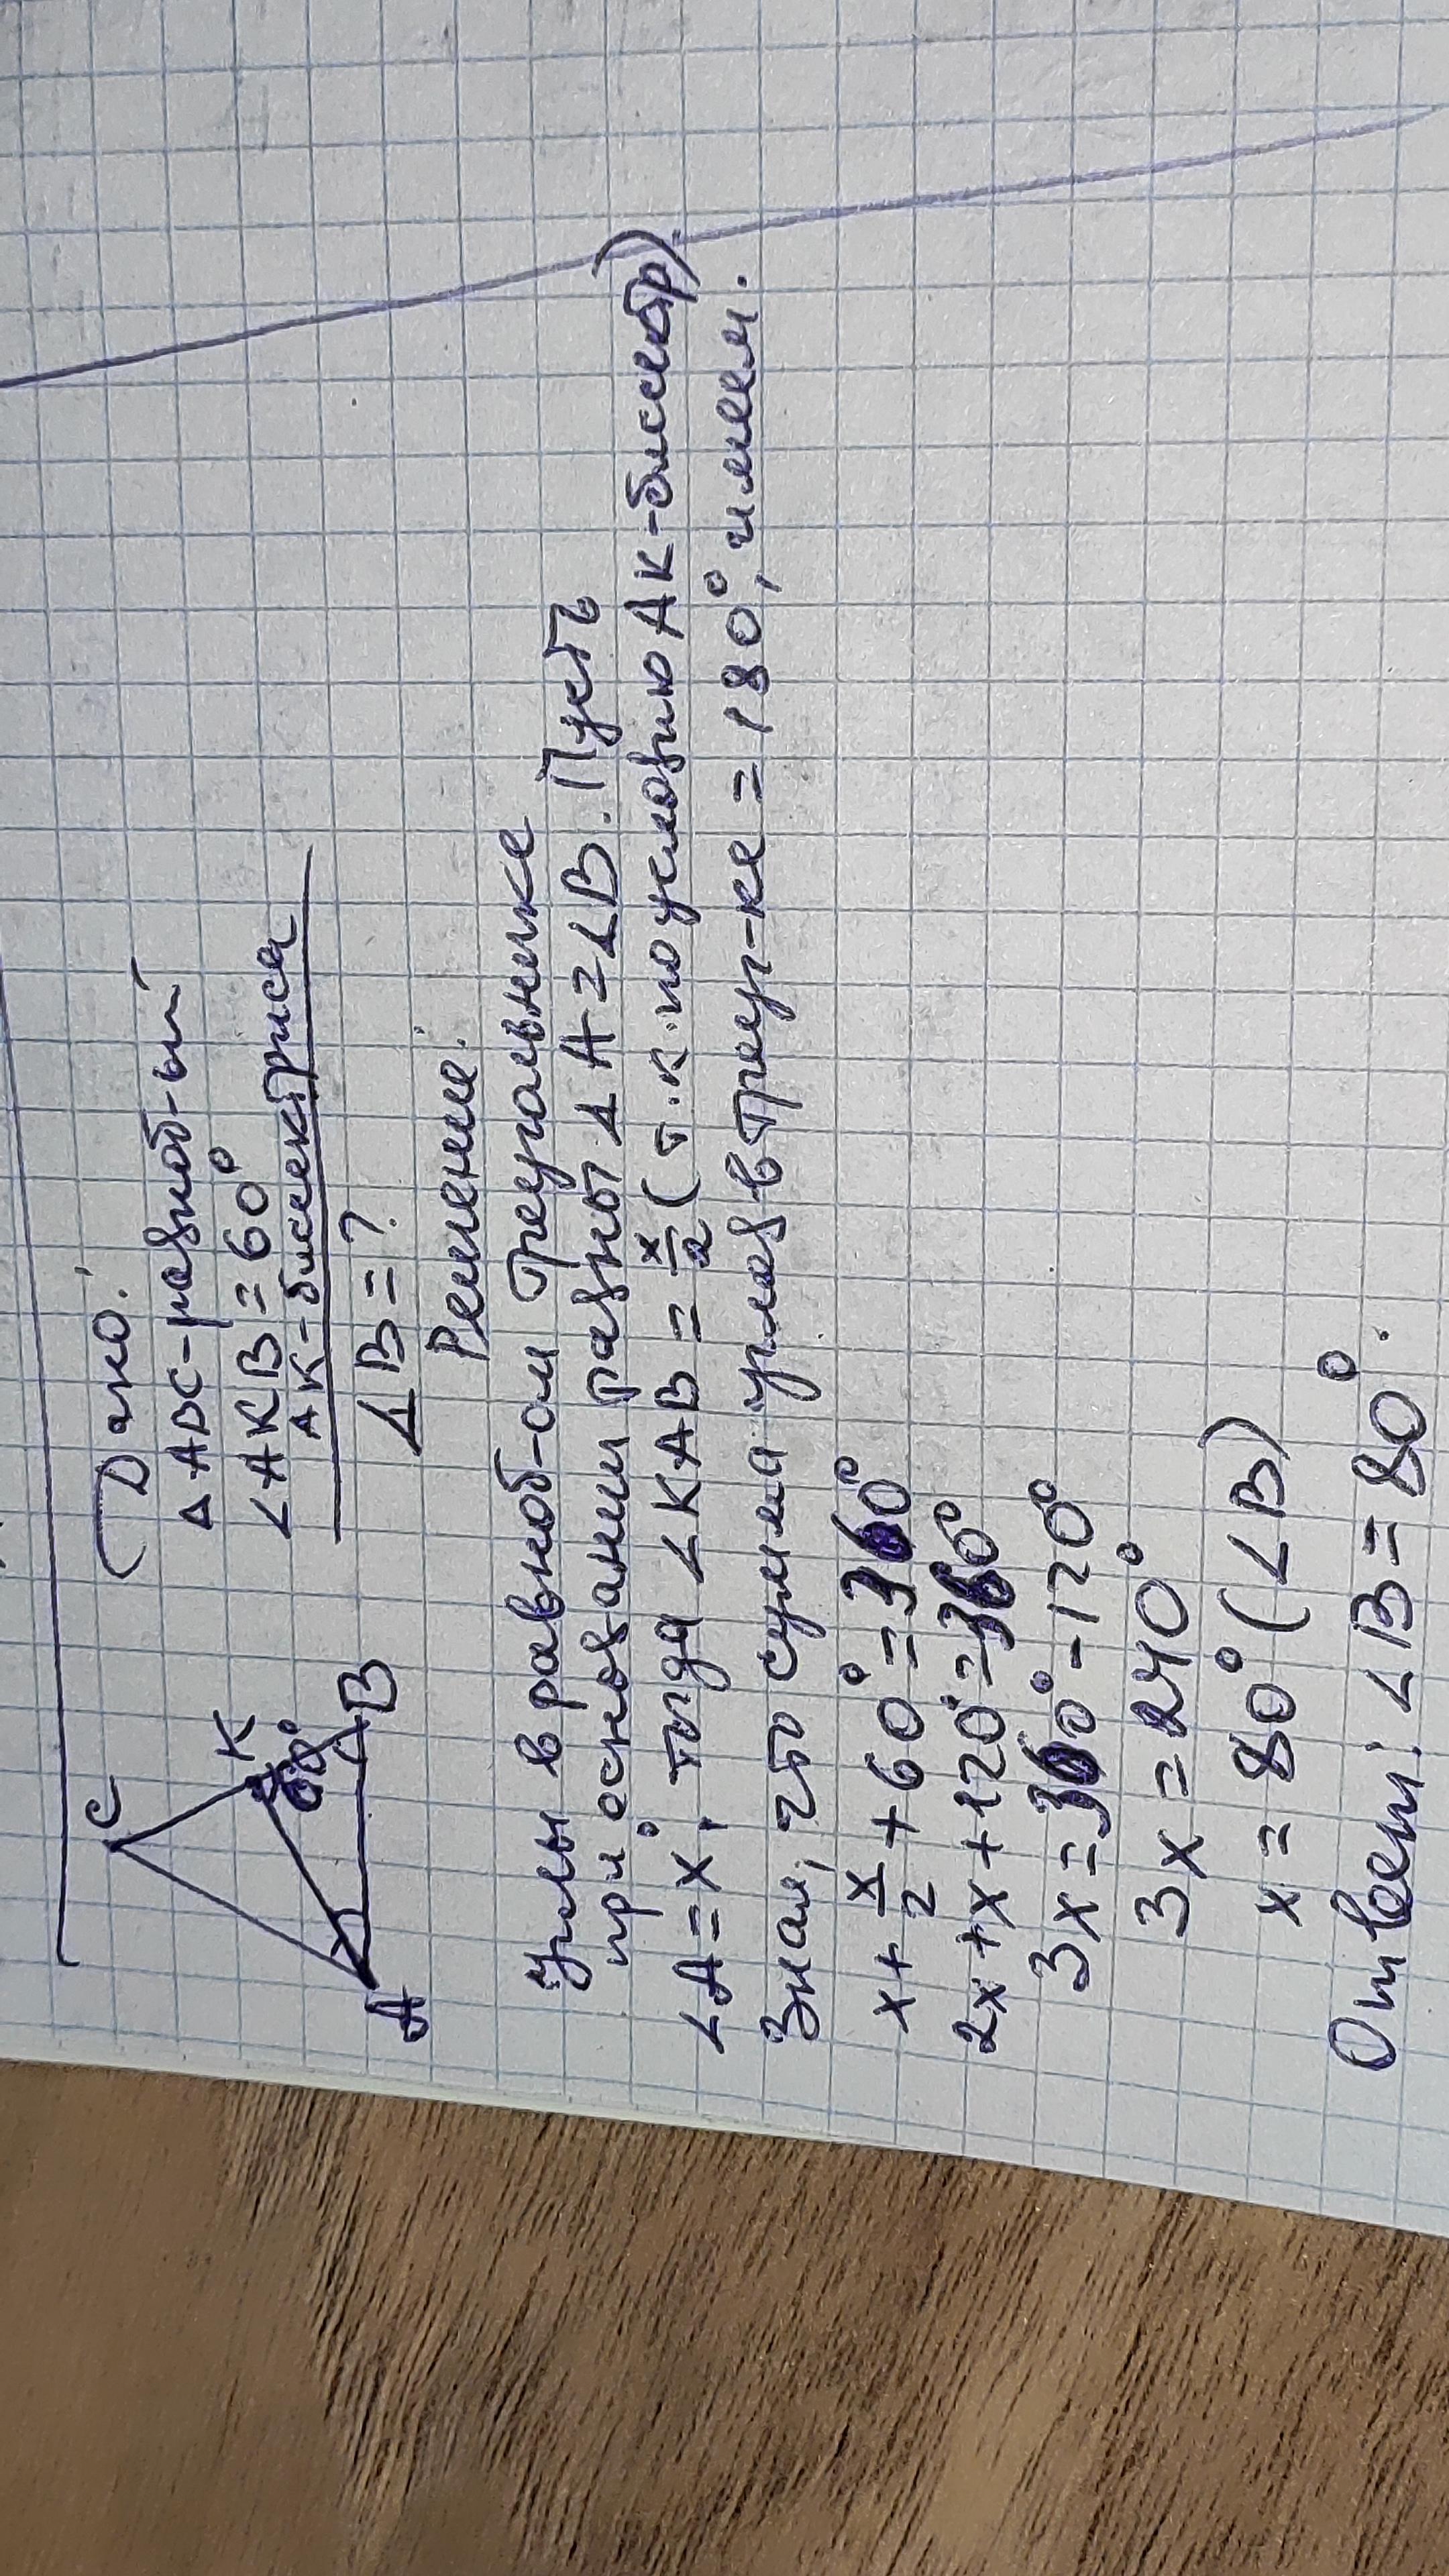 Дано:
Δ ABC - равноб-ый
∠AKB = 60°
AK - биссектриса
∠B = ?
C
K
60°
A
B
Решение:
Углы в равноб-ом треугольнике
при основании равны ∠A = ∠B. Пусть
∠A = x°, тогда ∠KAB = x/2 (т.к. по условию AK - биссектр)
Зная, что сумма углов в треуг-ке = 180°, имеем.
x + x/2 + 60° = 360°
2x + x + 120° = 360°
3x = 360° - 120°
3x = 240°
x = 80° (∠B)
Ответ: ∠B = 80°.